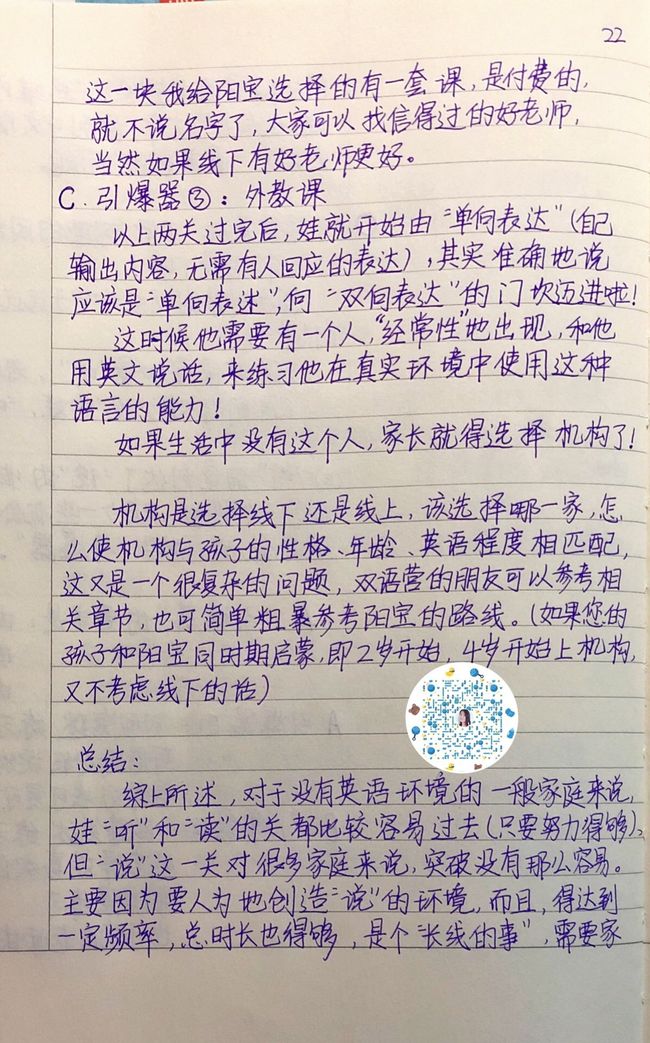 22
这一块我给阳宝选择的有一套课，是付费的，
就不说名字了，大家可以找信得过的好老师，
当然如果线下有好老师更好。
C. 引爆器③：外教课
以上两关过完后，娃就开始由“单向表达”（自己
输出内容，无需有人回应的表达），其实准确地说
应该是“单向表述”，向“双向表达”的门坎迈进啦！
这时候他需要有一个人，“经常性”地出现，和他
用英文说话，来练习他在真实环境中使用这种
语言的能力！
如果生活中没有这个人，家长就得选择机构了！
机构是选择线下还是线上，该选择哪一家，怎
么使机构与孩子的性格、年龄、英语程度相匹配，
这又是一个很复杂的问题，双语营的朋友可以参考相
关章节，也可简单粗暴参考阳宝的路线。（如果您的
孩子和阳宝同时期启蒙，即2岁开始，4岁开始上机构，
又不考虑线下的话）
总结：
综上所述，对于没有英语环境的一般家庭来说，
娃“听”和“读”的关都比较容易过去（只要努力得够）、
但“说”这一关对很多家庭来说，突破没有那么容易。
主要因为要人为地创造“说”的环境，而且，得达到
一定频率，总时长也得够，是个“长线的事”，需要家